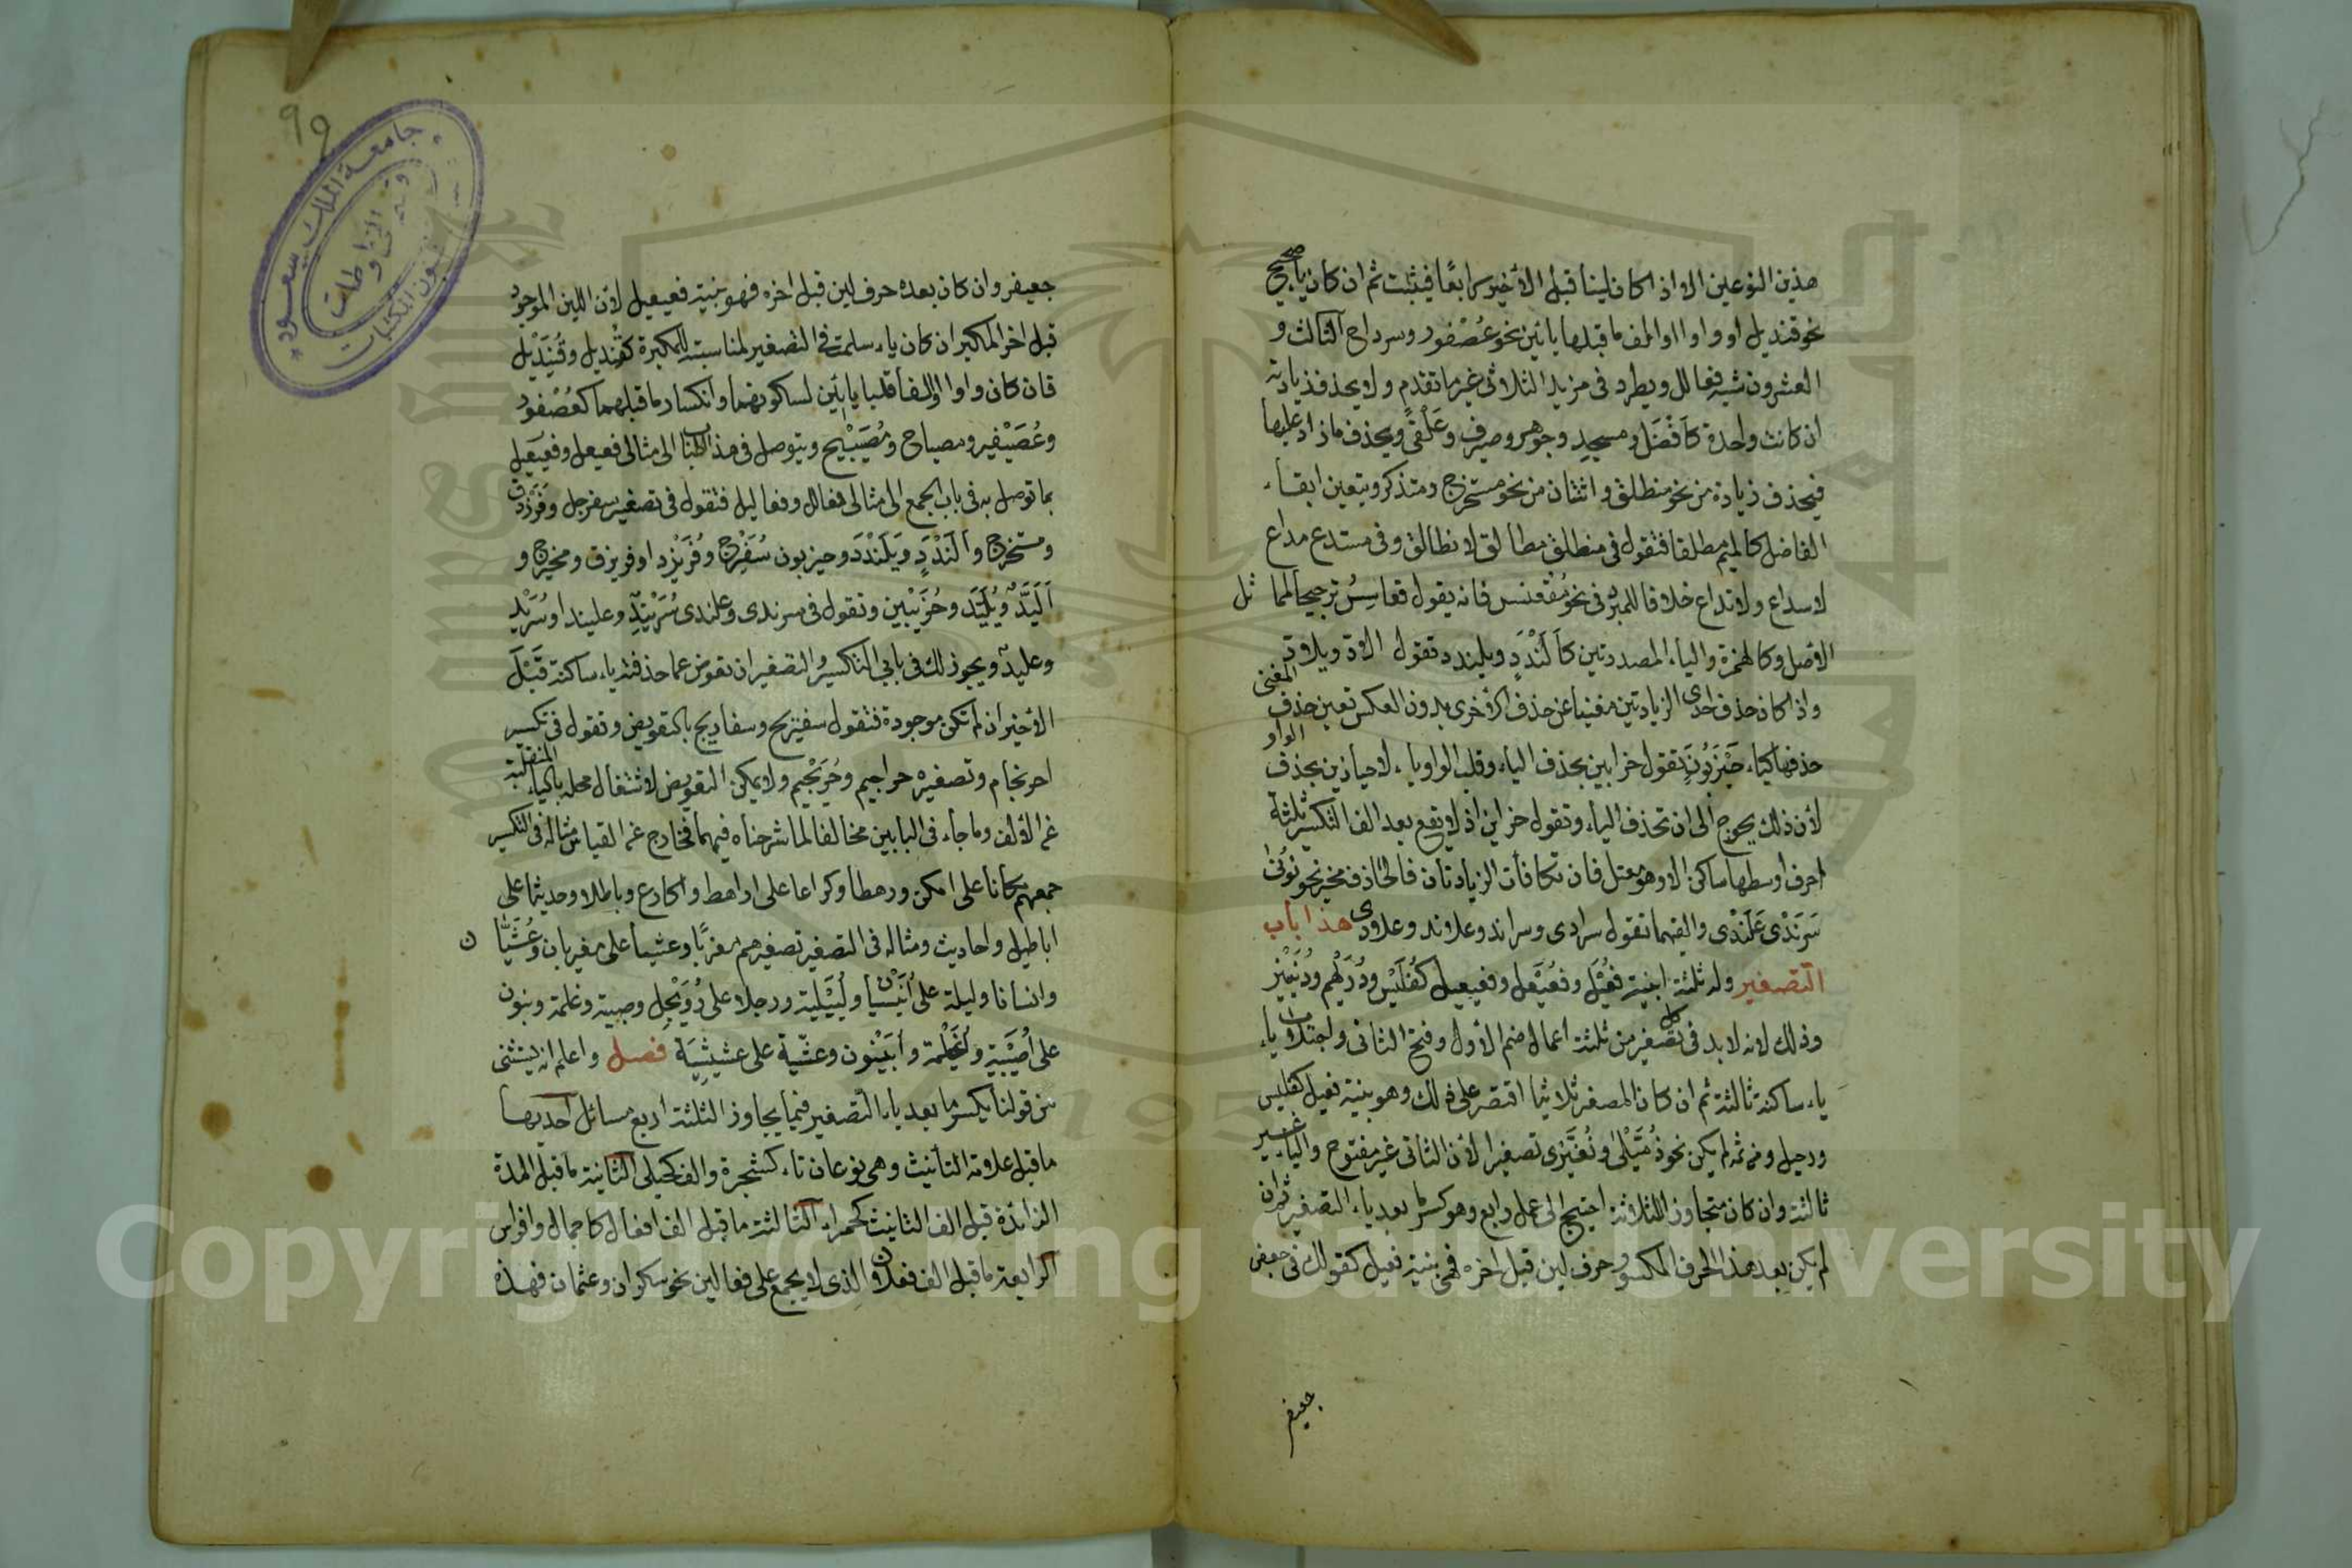 هذين النوعين الا اذا كان لينا قبل الأخير رابعًا فيثبت ثم ان كان ياء صحح
نحو قنديل او واوا او الف ما قبلها يائين نحو عُصْفور وسرداح الثالث و
العشرون شبه فعالل ويطرد فى مزيد الثلاثى غير ما تقدم ولا يحذف زيادته
ان كانت واحدة كأفْضَل ومسجدِ وجوهر وصيرف وعَلْقىً ويحذف ما زاد عليها
فيحذف زيادة من نحو منطلق واثنتان من نحو مستخرج ومتذكر ويتعين ابقاء
الفاضل كالميم مطلقا فتقول فى منطلق مطالق لا نطالق وفى مستدع مداع
لا سداع ولا تداع خلافا للمبرد فى نحو مُقْعنسس فانه يقول قعاسِسُ ترجيحا لمماثل
الأصل وكالهمزة والياء المصدرتين كألَنْدَدٍ ويلندد تقول الادّ ويلادّ
واذا كان حذف احدى الزيادتين مغنيا عن حذف الأخرى بدون العكس تعين حذف المغنى
حذفها كياء حَيْزَبُونَ تقول حزابين بحذف الياء وقلب الواو ياء لا حيازين بحذف الواو
لأن ذلك يحوج الى ان تحذف الياء وتقول حزابن اذ لا يقع بعد الف التكسير ثلثة
احرف اوسطها ساكن الا وهو معتل فان تكافأت الزيادتان فالحاذف مخير نحو نونَىْ
سَرَنْدى عَلَنْدى والفهما تقول سرادى وسراند وعلاند وعلادى هذا باب
التصغير وله ثلثة ابنية فُعَيْل وفُعَيْعِل وفعيعيل كفُلَيْس ودُرَيْهِم ودُنَيْنِير
وذلك لانه لابد فى كل تصغير من ثلثة اعمال ضم الأول وفتح الثانى واجتلاب ياء
ياء ساكنة ثالثة ثم ان كان المصغر ثلاثيا اقتصر على ذلك وهو بنية فعيل كفليس
ورجيل ومن ثم لم يكن نحو زُمَّيْل ولُغَّيْزى تصغيرا لأن الثانى غير مفتوح والياء غير
ثالثة وان كان متجاوز للثلاثة احتيج الى عمل رابع وهو كسر ما بعد ياء التصغير ثم ان
لم يكن بعد هذا الحرف المكسور حرف لين قبل اخره فهى بنية فعيل كقولك فى جعفر
جعيفر
جعيفر وان كان بعده حرف لين قبل اخره فهو بنية فعيعيل لأن اللين الموجود
قبل اخر المكبر ان كان ياء سلمت فى التصغير لمناسبته للكسرة كقنديل وقُنَيْديل
فان كان واوا او الفا قلبا يائين لسكونهما وانكسار ما قبلهما كعُصْفور
وعُصَيْفير ومصباح ومُصَيْبيح ويتوصل فى هذا الباب الى مثالى فعيعل وفعيعيل
بما توصل به فى باب الجمع الى مثالى فعالل وفعاليل فتقول فى تصغير سفرجل وفَرَزدق
ومستخرج وألَنْدَدٍ ويَلَنْدَدَ وحيزبون سُفَيْرج وفُرَيْزد او فريزق ومخيرج و
اُلَيِّدّ ويُلَيِّدّ وحُزَيْبين وتقول فى سرندى وعلندى سُرَيْنِدٍ وعليند او سُرَيْدٍ
وعليدٍ ويجوز لك فى بابى التكسير والتصغير ان تعوض عما حذفته ياء ساكنة قَبْلَ
الأخير ان لم تكن موجودة فتقول سفيريج وسفاريج بالتعويض وتقول فى تكسير
احرنجام وتصغيره حراجيم وحُرَيْجيم ولا يمكن التعويض لاشتغال محله بالياء المنقلبة
عن الألف وما جاء فى البابين مخالفا لما شرحناه فيهما فخارج عن القياس مثاله فى التكسير
جمعهم مكانا على امكن ورهطا وكراعا على اراهط واكارع وباطلا وحديثا على
اباطيل واحاديث ومثاله فى التصغير تصغيرهم مغربًا وعشيا على مغيربان وعُشَيَّا ن
وانسانا وليلة على أُنَيْسيان ولُيَيْلية ورجلا على رُوَيْجِل وصبية وغلمة وبنون
على أُصَيْبِيَة واُغَيْلمة واُبَيْنون وعشّية على عشيشِيَة فصل واعلم انه يستثنى
من قولنا يكسر ما بعد ياء التصغير فيما يجاوز الثلثة اربع مسائل احديها
ما قبل علامة التأنيث وهى نوعان تاء كشجرة والف كحبلى الثانية ما قبل المدة
الزائدة قبل الف التأنيث كحمراء الثالثة ما قبل الف افعال كاجمال وافراس
الرابعة ما قبل الف فعلان الذى لا يجمع على فعالين نحو سكران وعثمان فهذه
99
جامعة الملك سعود
المخطوطات
شئون المكتبات
1957
Copyright © King Saud University